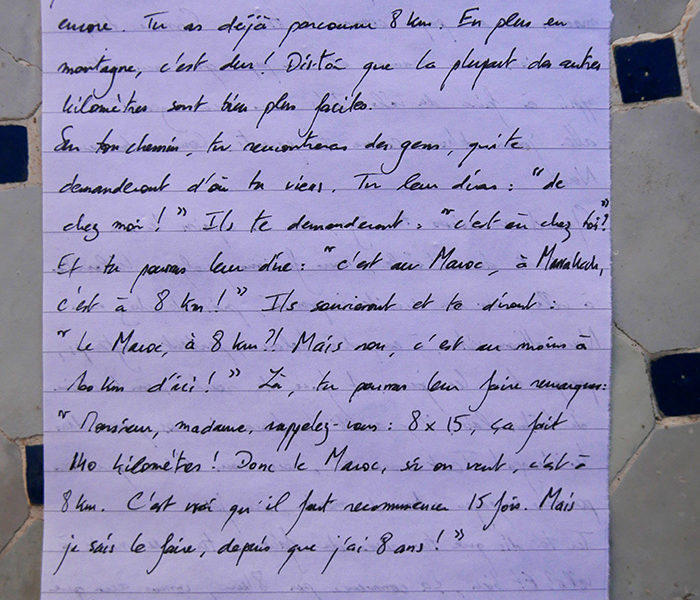 encore. Tu as déjà parcouru 8 km. En plus en
montagne, c'est dur ! Dis-toi que la plupart des autres
kilomètres sont bien plus faciles.
Sur ton chemin, tu rencontreras des gens, qui te
demanderont d'où tu viens. Tu leur diras : "de
chez moi !" Ils te demanderont : "c'est où chez toi"?
Et tu pourras leur dire : "c'est au Maroc, à Marrakech,
c'est à 8 km !" Ils souriront et te diront :
"Le Maroc, à 8 km?! Mais non, c'est au moins à
100 km d'ici !" Là, tu pourras leur faire remarquer :
"Monsieur, madame, rappelez-vous : 8 x 15, ça fait
110 kilomètres ! Donc le Maroc, si on veut, c'est à
8 km. C'est vrai qu'il faut recommencer 15 fois. Mais
je sais le faire, depuis que j'ai 8 ans !"